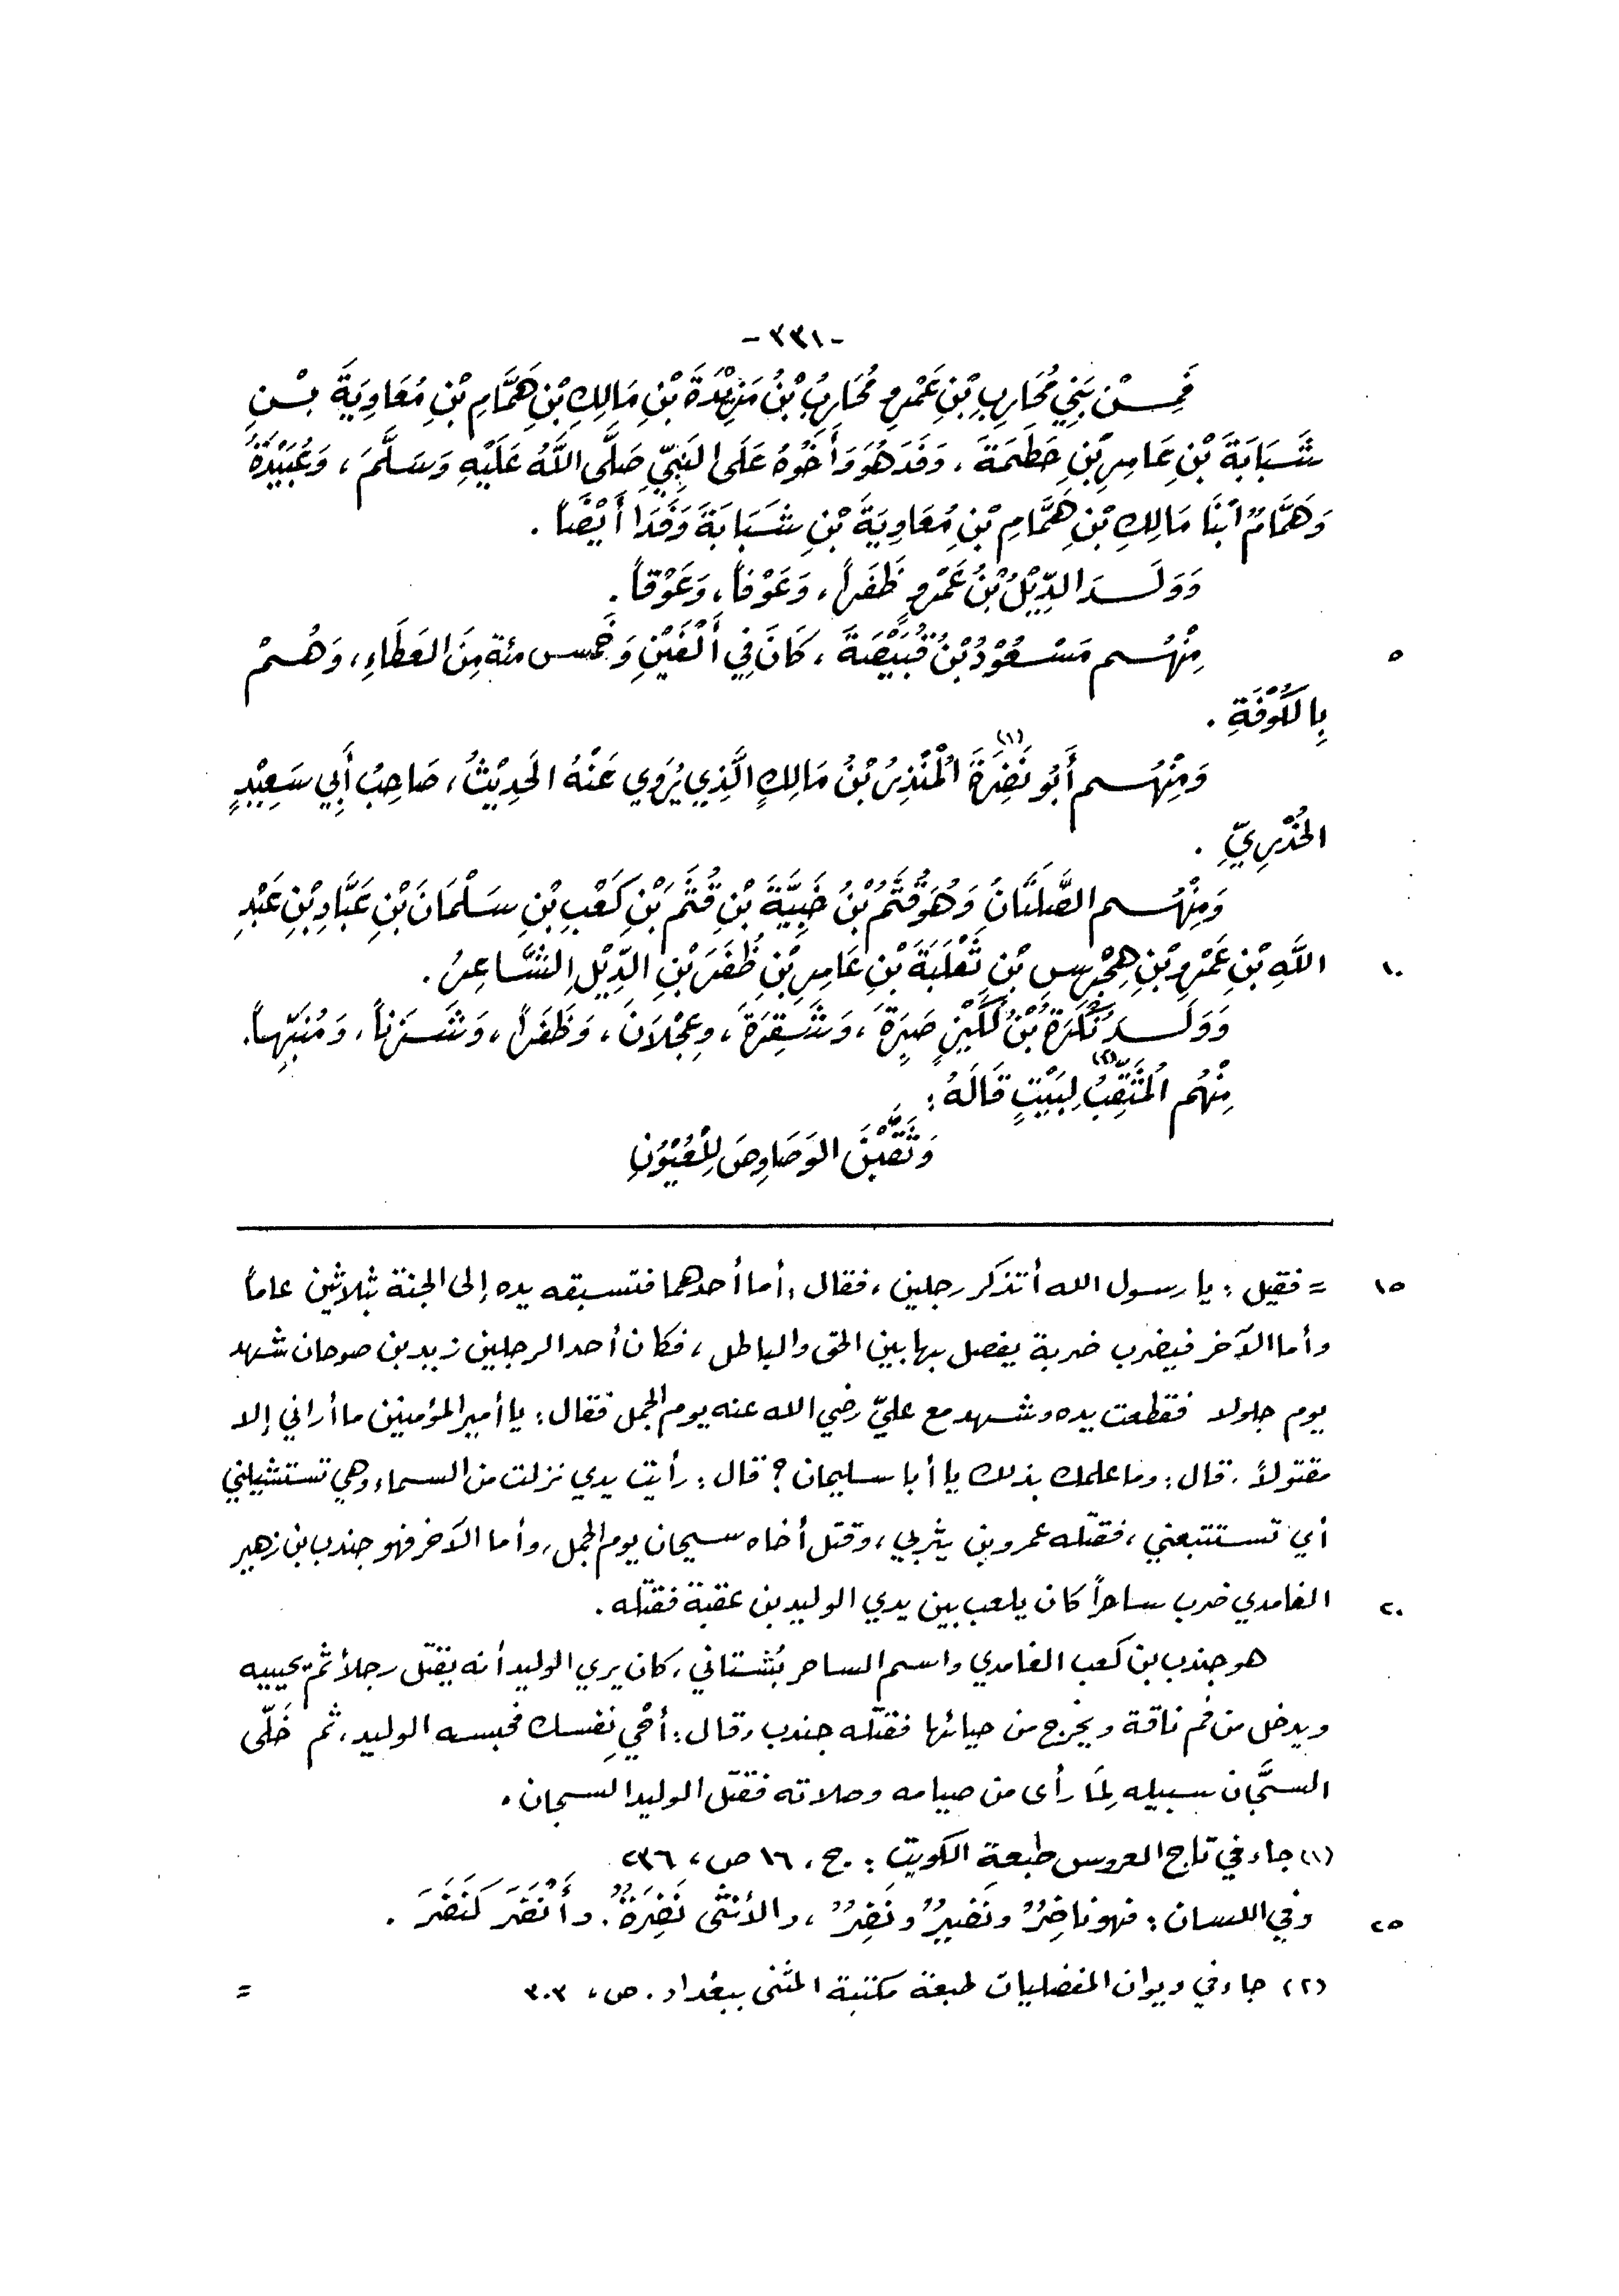 -٣٣١-
فَمِـنْ بَنِي مُحَارِبِ بْنِ عَمْرٍو مُحَارِبُ بْنُ مَزِيْدَةَ بْنِ مَالِكِ بْنِ هَمَّامِ بْنِ مُعَاوِيَةَ بْـنِ
شَـبَابَةَ بْنِ عَامِـرِ بْنِ حَطَمَةَ ، وَفَدَ هُوَ وَأَخُوهُ عَلَى النَّبِيِّ صَلَّى اللَّهُ عَلَيْهِ وَسَلَّمَ ، وَعُبَيْدَةُ
وَهَمَّامٌ ابْنَا مَالِكِ بْنِ هَمَّامِ بْنِ مُعَاوِيَةَ بْنِ شَـبَابَةَ وَفَدَا أَيْضًاً .
وَوَلَـدَ الدِّيْلُ بْنُ عَمْرٍو ظَفَراً ، وَعَوْفاً ، وَعَوْقاً .
٥
مِنْهُـم مَسْـعُوْدُ بْنُ قُبَيْصَةَ ، كَانَ فِي أَلْفَيْنِ وَخَمس مئة مِنَ العَطَاءِ ، وَهُـمْ
بِالكُوْفَةِ .
وَمِنْهُـم أَبُو نَضِرَةَ (١) الْمُنْذِرُ بْنُ مَالِكٍ الَّذِي يُرْوِي عَنْهُ الحَدِيْثُ ، صَاحِبُ أَبِي سَعِيْدٍ
الخُدْرِيِّ .
وَمِنْهُـم الصَّلَتَانُ وَهُوَ قُثَمُ بْنُ خَبِيَّةَ بْنِ قُثَمَ بْنِ كَعْبِ بْنِ سَـلْمَانَ بْنِ عَبَّادِ بْنِ عَبْدِ
١٠
اللَّهِ بْنِ عَمْرِو بْنِ هِجْرِسِ بْنِ ثَعْلَبَةَ بْنِ عَامِرِ بْنِ ظَفَرَ بْنِ الدِّيْلِ الشَّاعِرُ .
وَوَلَـدَ نُكْرَةُ بْنُ لُكَيْزٍ صَبِرَةَ ، وَشَـقِرَةَ ، وعِجْلَانَ ، وَظَفَراً ، وَشَـزَناً ، وَمُنَبِّهاً .
مِنْهُم الْمُثَقِّبُ (٢) لِبَيْتٍ قَالَهُ :
وَثَقَّبْنَ الوَصَاوِصَ لِلْعُيُوْنِ
١٥
= فقيل : يا رسول الله أتذكر رجلين ، فقال : أما أحدهما فتسبقه يده إلى الجنة بثلاثين عاماً
وأما الآخر فيضرب ضربة يفصل بها بين الحق والباطل ، فكان أحد الرجلين زيد بن صوحان شهد
يوم جلولا فقطعت يده وشهد مع عليّ رضي الله عنه يوم الجمل فقال : يا أمير المؤمنين ما أراني إلا
مقتولاً . قال : وما علمك بذلك يا أبا سليمان ؟ قال : رأيت يدي نزلت من السماء وهي تستشيلني
أي تستتبعني ، فقتله عمرو بن يثربي ، وقتل أخاه سيحان يوم الجمل . وأما الآخر فهو جندب بن زهير
٢٠
الغامدي ضرب ساحراً كان يلعب بين يدي الوليد بن عقبة فقتله .
هو جندب بن كعب الغامدي واسم الساحر بُشتاني ، كان يري الوليد أنه يقتل رجلاً ثم يحييه
ويدخل من فم ناقة ويخرج من حيائها فقتله جندب وقال : أحْيِ نفسك فحبسه الوليد ، ثم خَلَّى
السجَّان سبيله لِمَا رأى من صيامه وصلاته فقتل الوليد السجان .
(١) جاء في تاج العروس طبعة الكويت : ج ، ١٦ ص ، ٢٣٦
٢٥
وفي اللسان : فهو ناضِرٌ ونَضيرٌ ونَضِرٌ ، والأنثى نَضِرَةٌ . وأَنْضَرَ كَنَضَرَ .
(٢) جاء في ديوان المفضليات طبعة مكتبة المثنى ببغداد . ص ، ٣٠٣
=